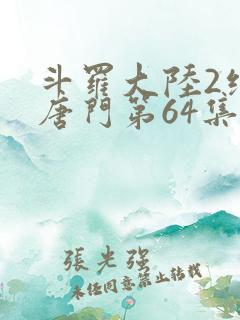 斗羅大陸2絕
唐門第64集
張光強
未經同意禁止轉載